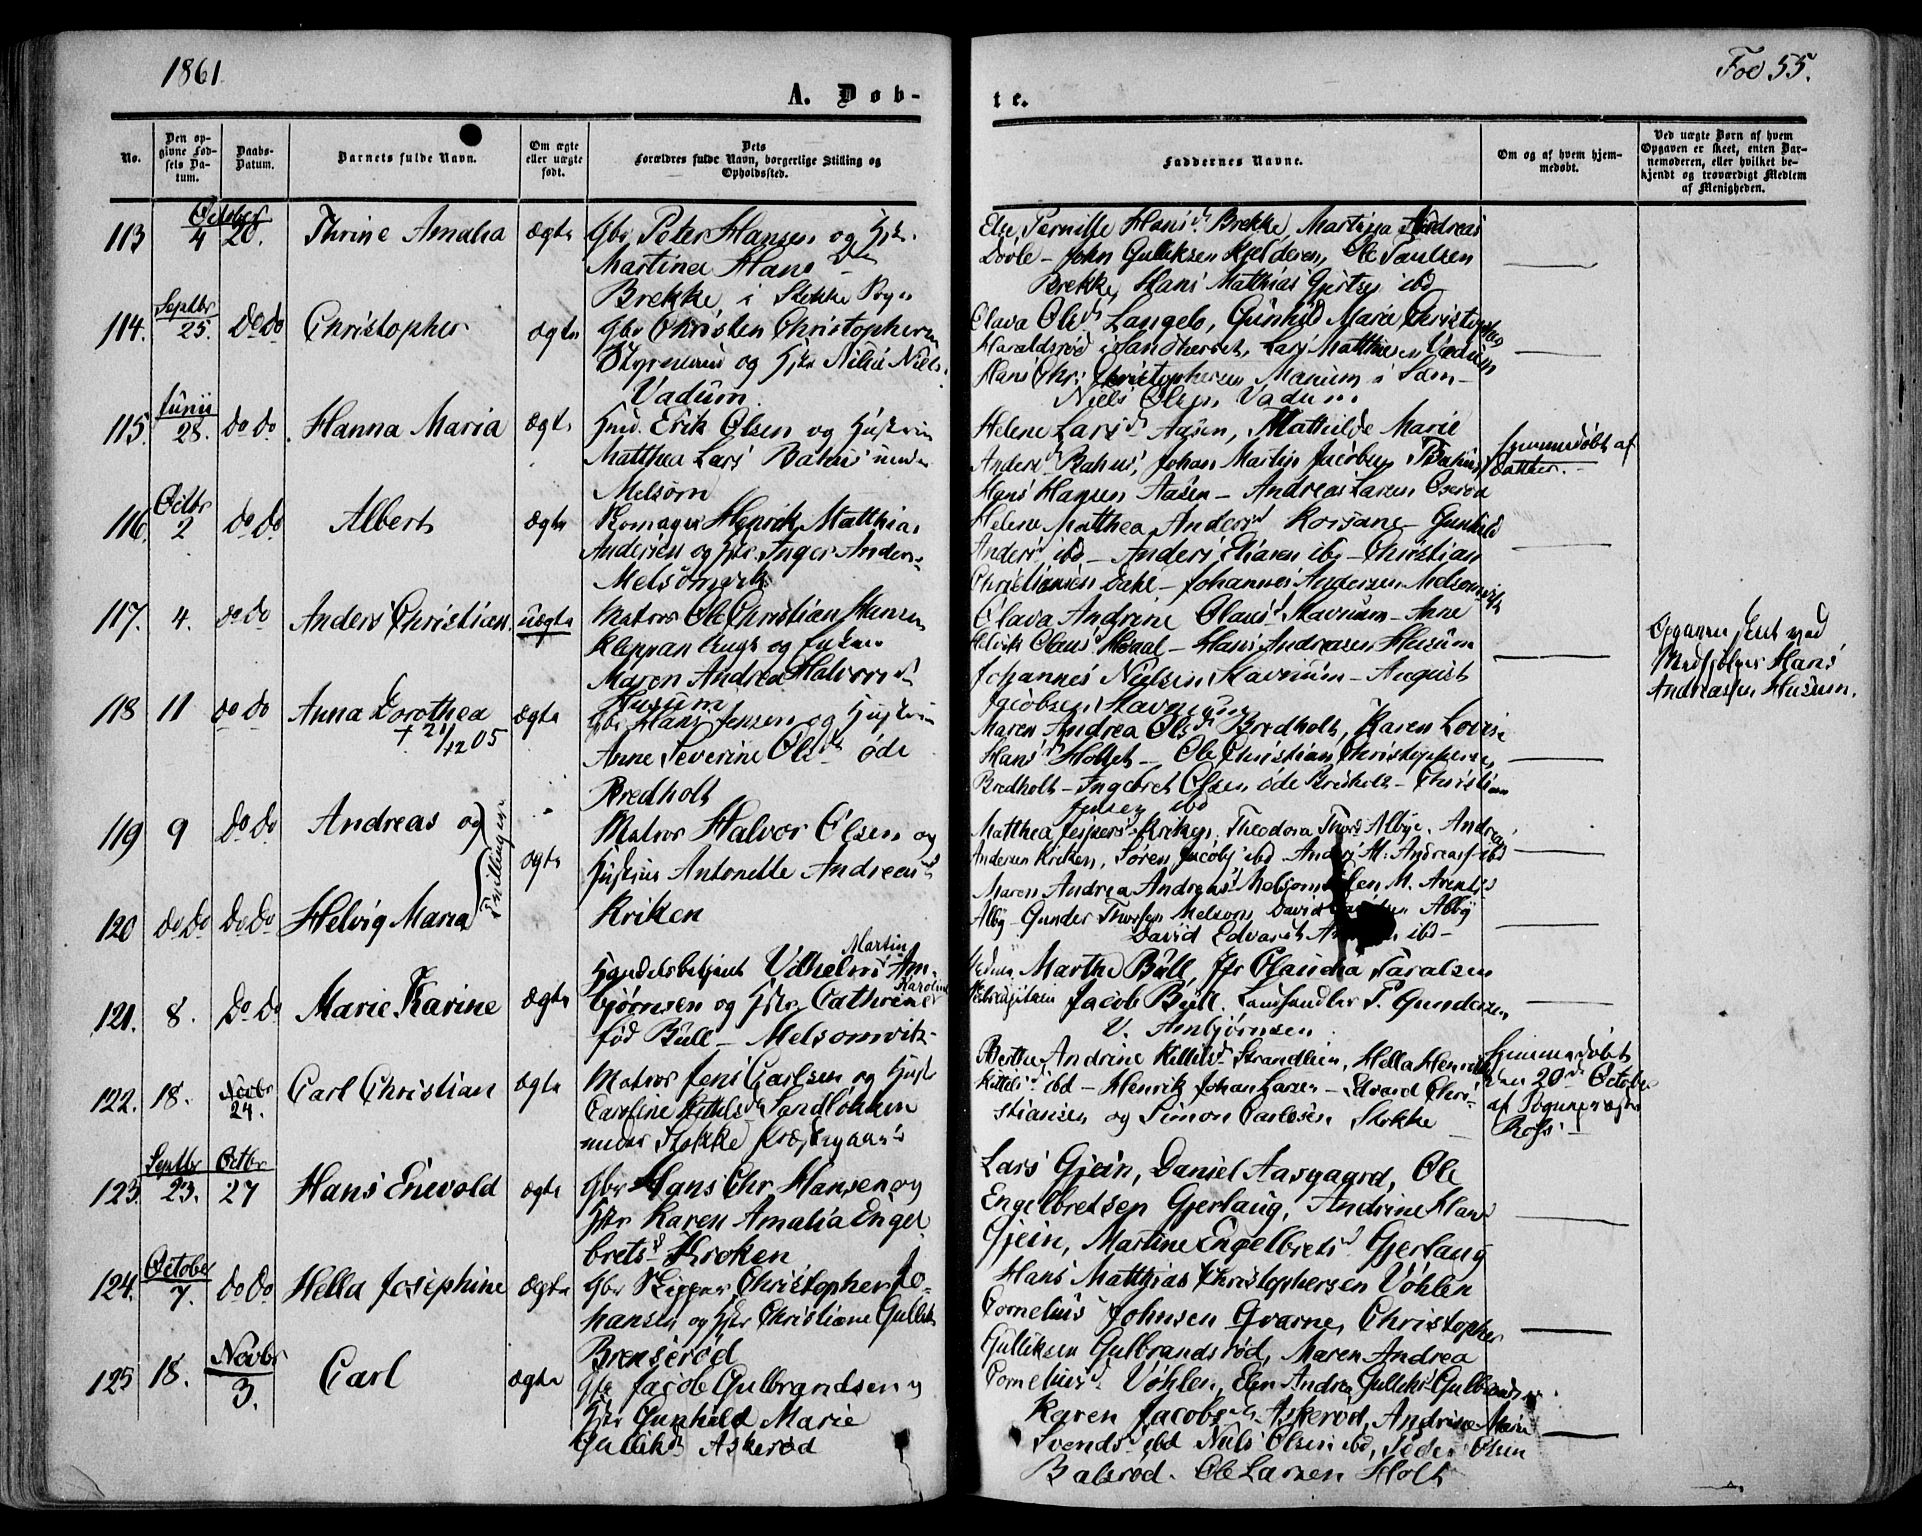 1861.
Fol 55.
A. Døb-
te.
No.
Den op-
givne Fød-
sels Da-
tum.
Daabs-
Datum.
Barnets fulde Navn.
Om ægte
eller uægte
født.
Dets
Forældres fulde Navn, borgerlige Stilling og
Opholdssted.
Faddernes Navne.
Om og af hvem hjem-
medøbt.
Ved uægte Børn af hvem
Opgaven er skeet, enten Bar-
nemoderen, eller hvilket be-
kjendt og troværdigt Medlem
af Menigheden.
October
113 4 20. Thrine Amalia ægte Gbr Peter Hansen og Hstr.
Martinea Hans Dtr
Brekke i Stokke Sogn
Else Pernille Hans D Brekke, Martina Andreas
Dovle - John Gulliksen Kjelderen, Ole Paulsen
Brekke, Hans Matthias Gjertsen ibd
Septbr
114. 25. do do Christopher ægte Gbr Christen Christophersen
og Hstr Nils
Vadum.
Olava Ols D Langelo, Gunhild Marie Christophers
Haraldsrød i Sandherred, Lars Matthisen Vadum
Hans Chr: Christophersen Manum i Sam-
Niels Olsen Vadum.
Junii
115. 28. do do Hanna Maria ægte Huus. Erik Olsen og Hustru
Matthea Lars Bahus under
Melsom
Helene Lars D Aasen, Mathilde Marie
Anders D Bahus, Johan Martin Jacobsen Bahus
Hans Hansen Aasen - Andreas Larsen Oserød
Hjemmedøbt af
Octbr
116. 2 do do Albert ægte Henrik Matthias
Andersen og Hstr. Inger Anders
Melsomvik
Helene Matthea Anders D Gunhild
Anders D ibd - Anders ibd - Christian
Christiansen Dahl - Johannes Andersen Melsomvik
117. 4. do do Anders Christian. uægte Matros Ole Christian Hansen
Kleppan og
Maren Andrea Halvors D
Husum
Olava Andrine Olaus D Stavnum - Anne
Helvik Olaus D - Hans Andreasen Husum
Johannes Nielsen Stavnum - August
Jacobsen Stavnum
Opgaven skeet ved
Medhjelper Hans
Andreassen Husum.
118 11 do do Anna Dorothea ægte Gbr Hans Jensen og Hustru
+ 21/12 05
Anne Severine Ols Dtr øde
Bredholt
Maren Andrea Ols D Bredholt, Karen Lovise
Hans D Holtet - Ole Christian Christophersen
Bredholt - Ingebret Olsen øde Bredholt - Christian
Jensen ibd
119 9 do do Andreas og ægte Matros Halvor Olsen og
Hustrue Antonette Andreas D
Kriken
Tvillinger
Matthea Jespers D Kriken. Theodora Thors Albye. Andreas
Andersen Kriken, Søren Jacobs ibd Anders M. Andreass ibd
120 do do do do Helvig Maria
Maren Andrea Andreas D Melsom Elen M. Arentzs
Alby - Gunder Thorsen Melsom, David Alby
David Edvard ibd -
121. 8. do do Marie Karine ægte Handelsbetjent Vilhelm Martin Am-
bjørnsen og Hstr Cathrine Karoline
fød Bull - Melsomvik -
Madame Marthe Bull, Jfr Claudia Taraldsen
Jacob Bull. Landhandler P. Gundersen
V. Ambjørnsen
122. 18. Novbr 24. Carl Christian ægte Matros Jens Carlsen og Hustr
Caroline Kittels Dtr Sandløkken
under Stokke Præstegaard
Berthe Andrine Kittels D Strandlien, Hella Henrikke
Kittels D ibd - Henrik Johan Larsen - Edvard Chri-
stiansen og Simon Carlsen Stokke
Hjemmedøbt
den 20de October
af Sognepræst
Ross -
Septbr Octbr
123. 23. 27 Hans Enevold ægte Gbr Hans Chr Hansen og
Hstr Karen Amalia Engel-
brets D Kroken
Lars Gjein, Daniel Aasgaard, Ole
Engelbretsen Gjerlaug, Andrine Hans
Gjein, Martine Engelbrets D Gjerlaug
October
124. 7. do do Hella Josephine ægte Gbr Skipper Christopher Jo-
hansen og Hstr Christiane Gulliks
Brenserød
Hans Matthias Christophersen Vøhlen
Cornelius Johnsen Qvarne, Christopher
Gulliksen Gulbrandsrød, Maren Andrea
Cornelius D Vøhlen, Elen Andrea Gulliks Gulbrandsr
Novbr
125 18. 3. Carl ægte Gbr Jacob Gulbrandsen og
Hstr Gunhild Marie
Gulliks D Askerød
Karen Jacobs Dtr Askerød, Andrine Marie
Svends D ibd Niels Olsen ibd, Peder Olsen
Balsrød. Ole Larsen Holt